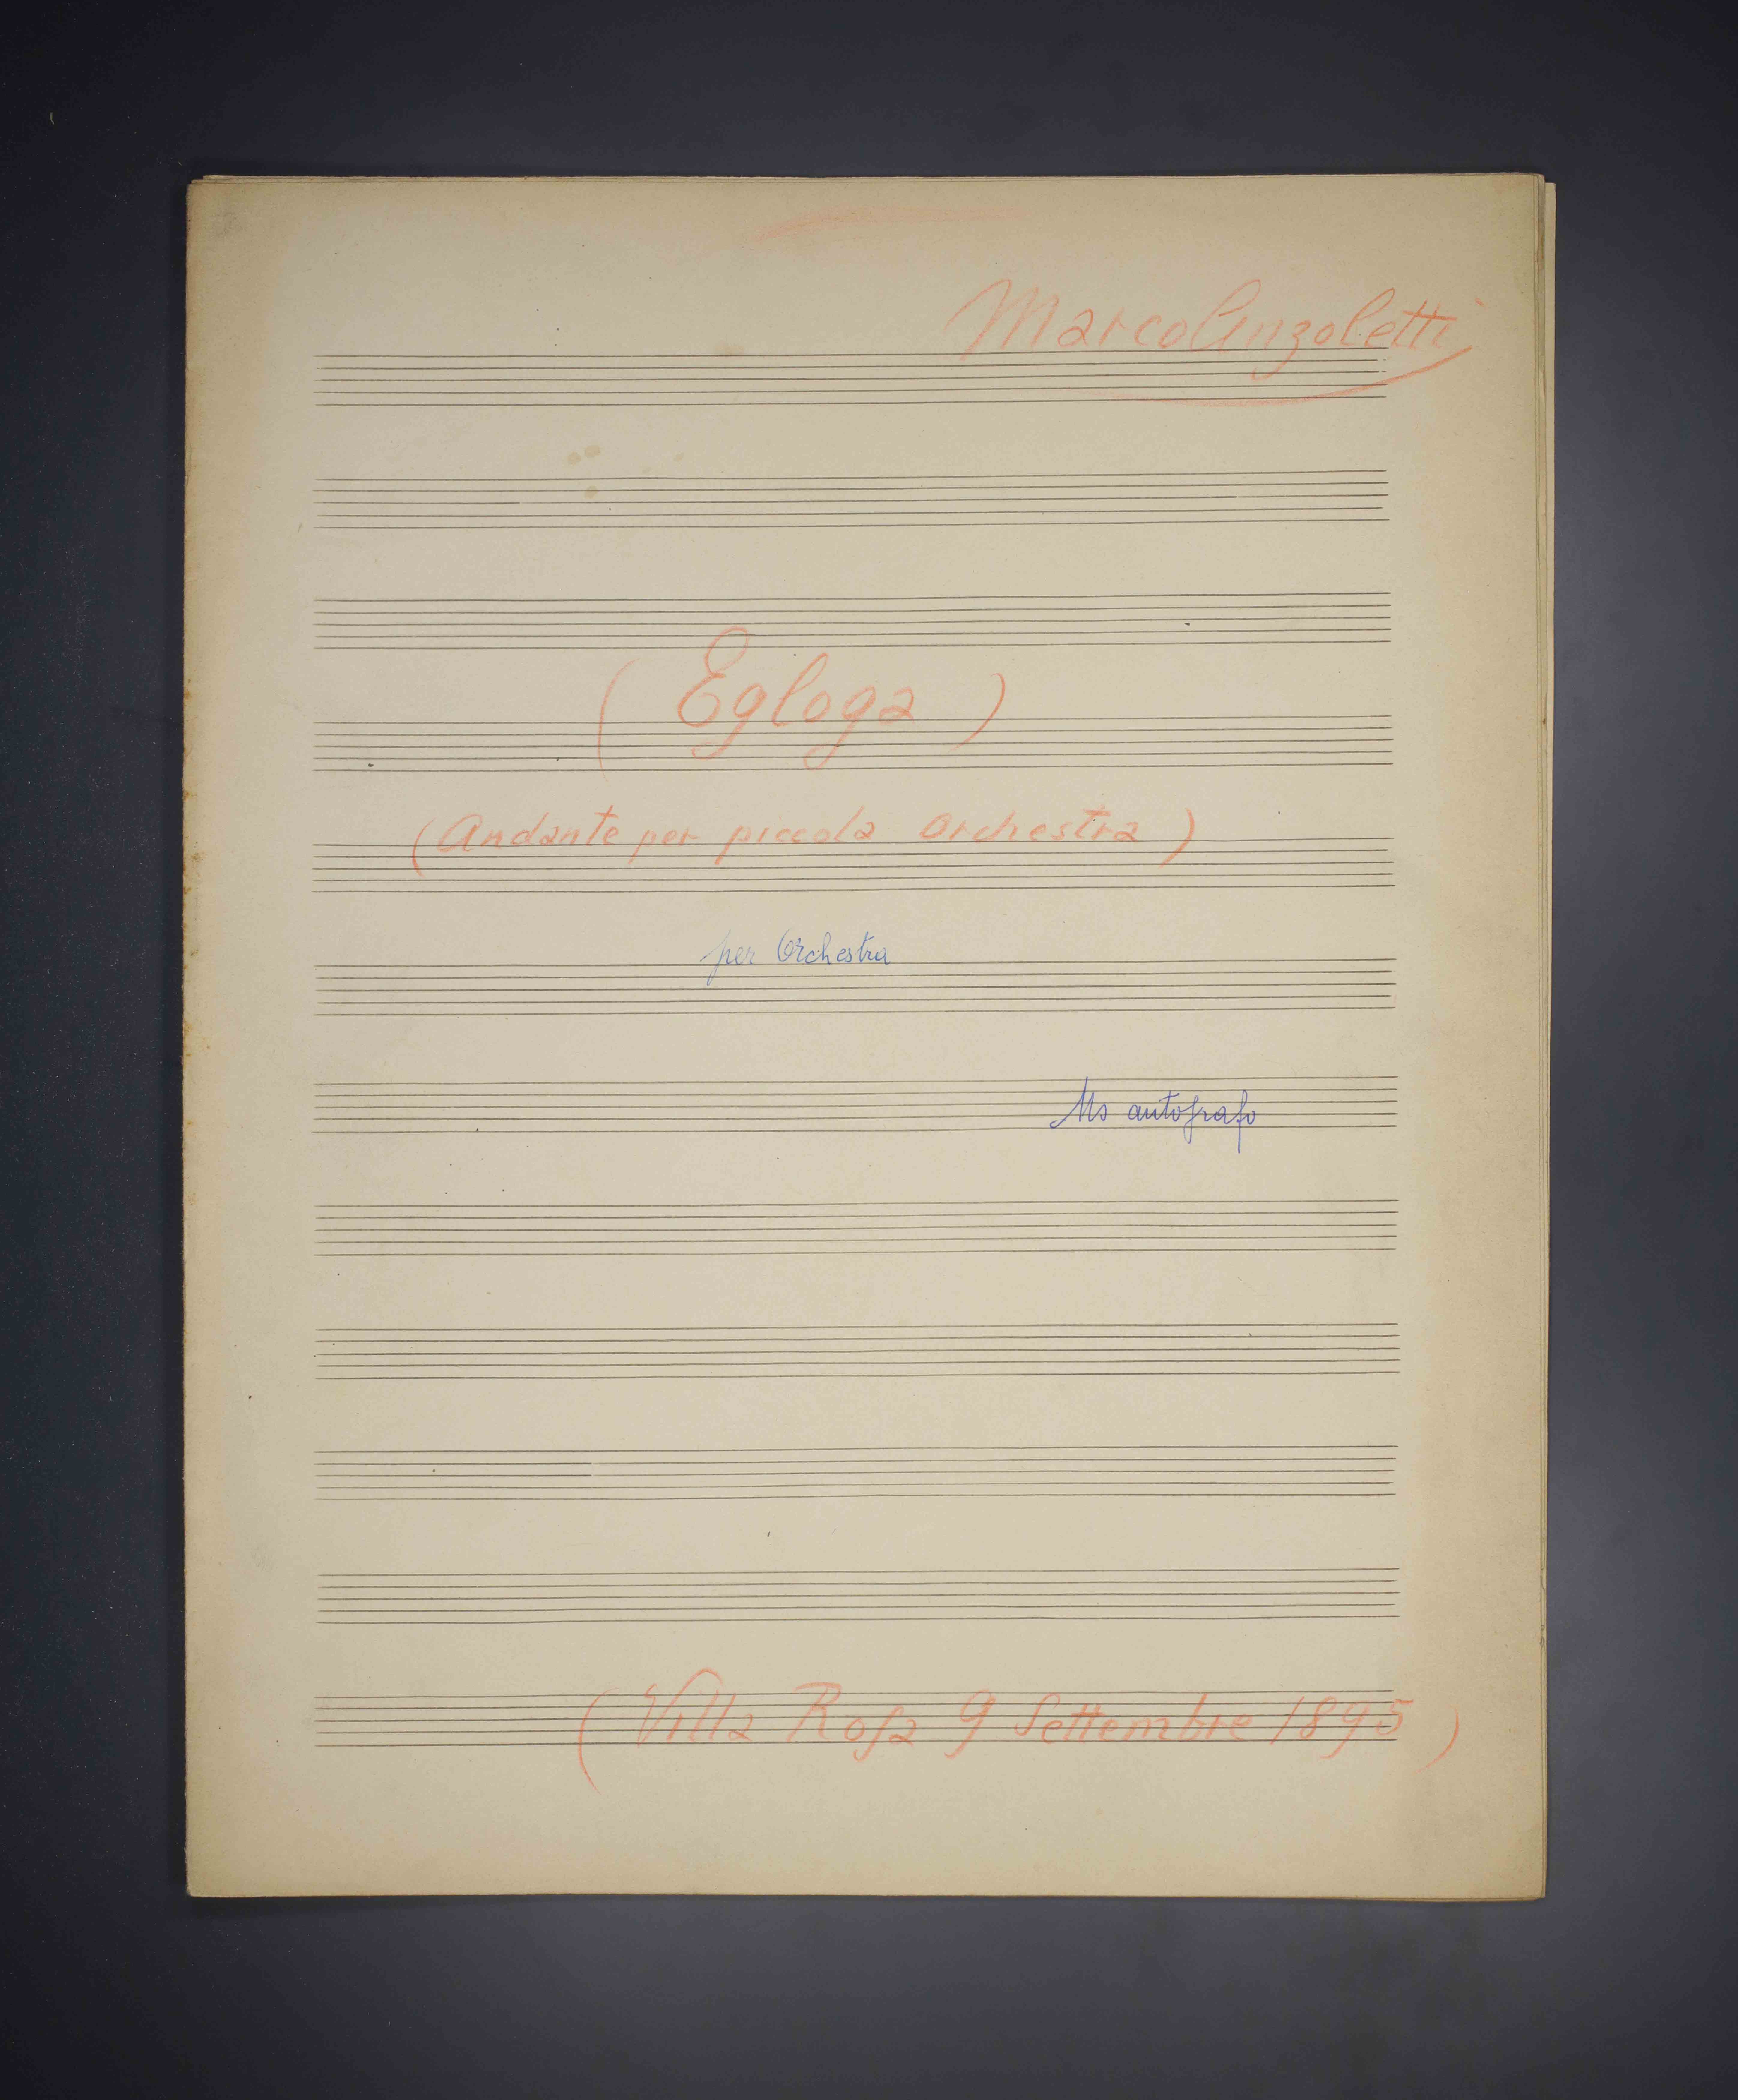 Marco Anzoletti
( Egloga )
(Andante per piccola Orchestra)
per Orchestra
Ms autografo
( Villa Rosa 9 Settembre 1895 )